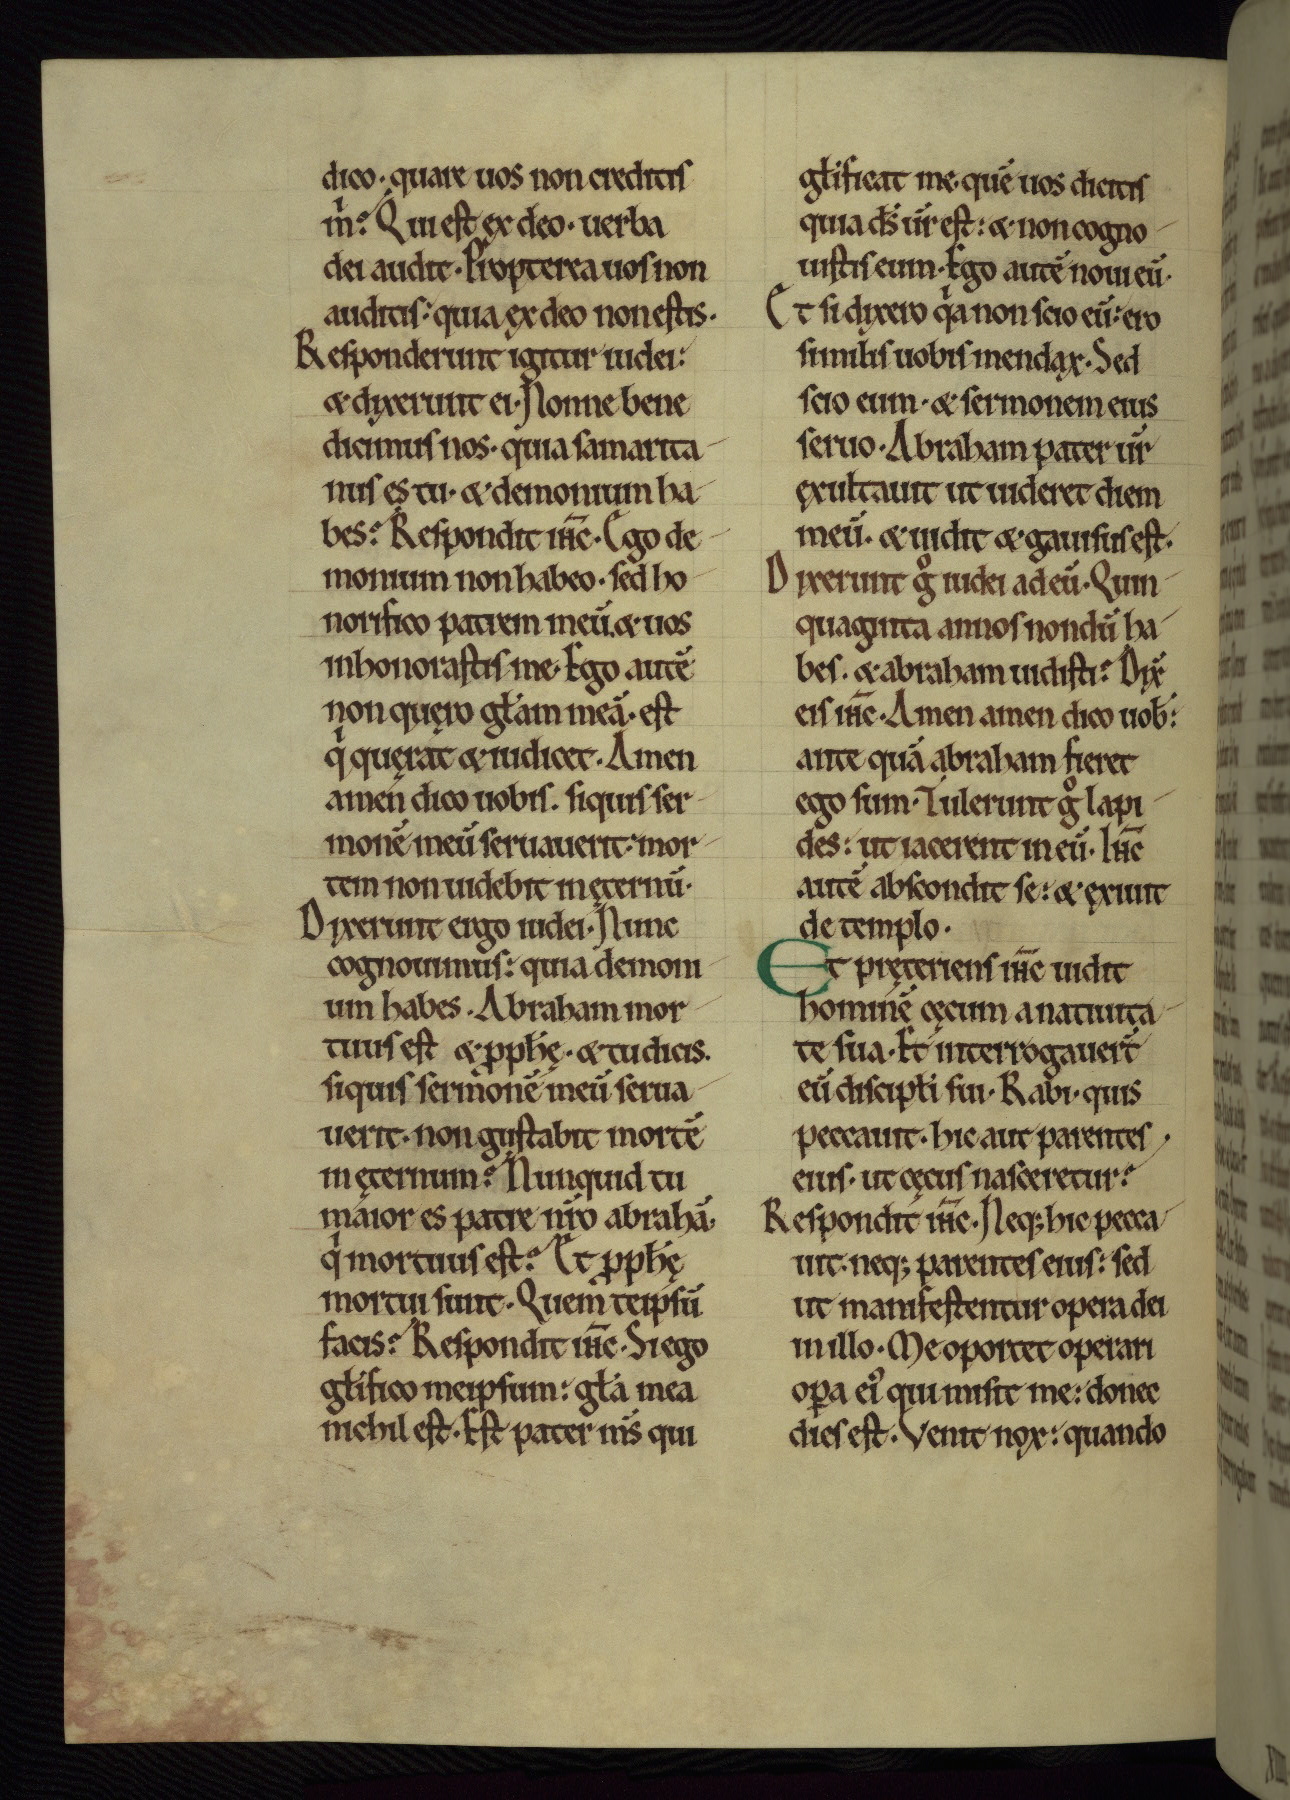 dico· quare uos non creditis
m̊i: Qui est ex deo· uerba
dei audit· Propterea uos non
auditis: quia ex deo non estis·
Responderunt igitur iudei:
& dixerunt ei· Nonne bene
dicimus nos· quia samarita-
nus es tu· & demonium ha-
bes? Respondit ihc̄· Ego de-
monium non habeo· sed ho-
norifico patrem meū· & uos
inhonorastis me· Ego autē
non quęro głam meā· est
qi quęrat & iudicet· Amen
amen dico uobis· siquis ser-
monē meū seruauerit: mor-
tem non uidebit in ęternū·
Dixerunt ergo iudei· Nunc
cognouimus: quia demoni-
um habes· Abraham mor-
tuus est & pphę· & tu dicis·
siquis sermonē meū serua-
uerit· non gustabit mortē
in ęternum? Nunquid tu
maior es patre nr̄o abrahā·
qi mortuus est? Et pphę
mortui sunt· Quem teipsū
facis? Respondit ihc̄· Si ego
głifico meipsum: gła mea
nichil est· Est pater ms̄ qui
głificat me· quē uos dicitis
quia ds̄ ur̄ est: & non cogno-
uistis eum· Ego autē noui eū·
Et si dixero qa non scio eū: ero
similis uobis mendax· Sed
scio eum· & sermonem eius
seruo· Abraham pater ur̄
exultauit ut uideret diem
meū· & uidit & gauisus est·
Dixerunt gͦ iudei ad eū· Quin-
quaginta annos nondū ha-
bes· & abraham uidisti? Dix̄
eis ihc̄· Amen amen dico uob̄:
ante quā abraham fieret
ego sum· Tulerunt gͦ lapi-
des: ut iacerent in eū· Ihc̄
autē abscondit se: & exiuit
de templo·
Et pręteriens ihc̄ uidit
hominē cęcum a natiuita-
te sua· Et interrogauert̄
eū discipłi sui· Rabi· quis
peccauit· hic aut parentes
eius· ut cęcus nasceretur?
Respondit ihc̄· Neq; hic pecca-
uit· neq; parentes eius: sed
ut manifestentur opera dei
in illo· Me oportet operari
opa ei' qui misit me: donec
dies est· Venit nox: quando